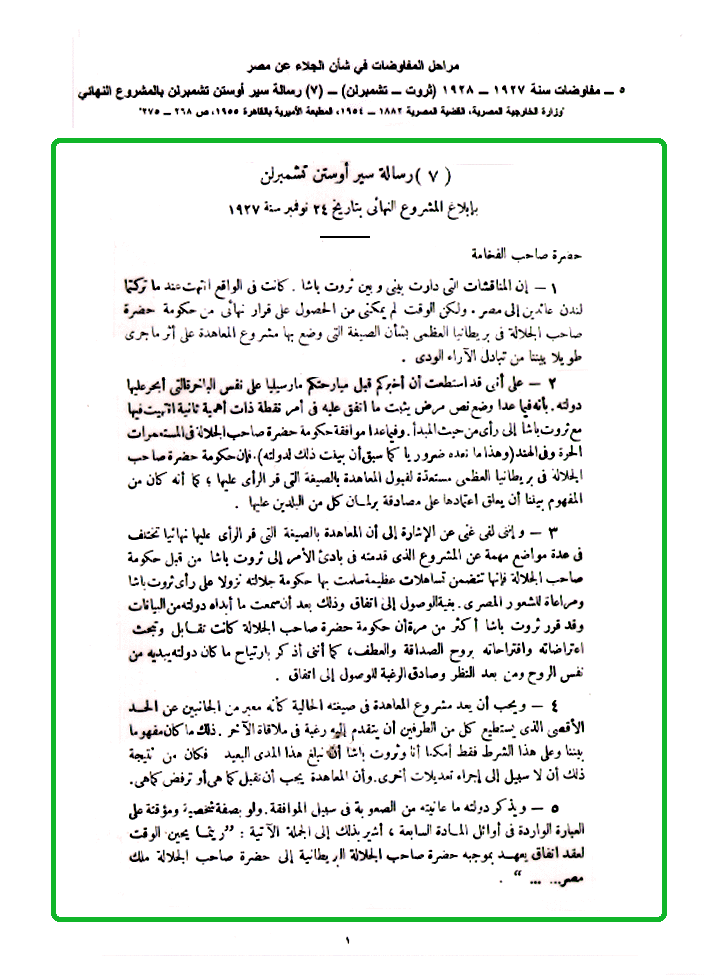 مراحل المفاوضات في شأن الجلاء عن مصر
٥ ــ مفاوضات سنة ١٩٢٧ ــ ١٩٢٨ (ثروت ــ تشمبرلن) ــ (٧) رسالة سير أوستن تشمبرلن بالمشروع النهائي
"وزارة الخارجية المصرية، القضية المصرية ١٨٨٢ ــ ١٩٥٤، المطبعة الأميرية بالقاهرة ١٩٥٥، ص ٢٦٨ ــ ٢٧٥"
(٧) رسالة سير أوستن تشمبرلن
بإبلاغ المشروع النهائى بتاريخ ٢٤ نوفمبر سنة ١٩٢٧
حضرة صاحب الفخامة
١ — إن المناقشات التى دارت بينى وبين ثروت باشا . كانت فى الواقع انتهت عند ما تركتما
لندن عائدين إلى مصر . ولكن الوقت لم يمكنى من الحصول على قرار نهائى من حكومة حضرة
صاحب الجلالة فى بريطانيا العظمى بشأن الصيغة التى وضع بها مشروع المعاهدة على أثر ماجرى
طويلا بيننا من تبادل الآراء الودى .
٢ — على أنى قد استطعت أن أخبركم قبل مبارحتكم مارسيليا على نفس الباخرةالتى أبحرعليها
دولته . بأنه فيما عدا وضع نص مرض يثبت ما اتفق عليه فى أمر نقطة ذات أهمية ثانية انتهيت فيها
مع ثروت باشا إلى رأى من حيث المبدأ . وفيما عدا موافقة حكومة حضرة صاحب الجلالة فى المستعمرات
الحرة وفى الهند (وهذا ما نعده ضروريا كما سبق أن بينت ذلك لدولته) . فإن حكومة حضرة صاحب
الجلالة فى بريطانيا العظمى مستعدة لقبول المعاهدة بالصيغة التى قر الرأى عليها ؛ كما أنه كان من
المفهوم بيننا أن يعلق اعتمادها على مصادقة برلمان كل من البلدين عليها .
٣ — وإنى لفى غنى عن الإشارة إلى أن المعاهدة بالصيغة التى قر الرأى عليها نهائيا تختلف
فى عدة مواضع مهمة عن المشروع الذى قدمته فى بادئ الأمر إلى ثروت باشا من قبل حكومة
صاحب الجلالة فإنها تتضمن تساهلات عظيمة سلمت بها حكومة جلالته نزولا على رأى ثروت باشا
ومراعاة للشعور المصرى . بغية الوصول إلى اتفاق وذلك بعد أن سمعت ما أبداه دولته من البيانات
وقد قرر ثروت باشا أكثر من مرة أن حكومة حضرة صاحب الجلالة كانت تقابل وتبحث
اعتراضاته واقتراحاته بروح الصداقة والعطف، كما أننى أذكر بارتياح ما كان دولته يبديه من
نفس الروح ومن بعد النظر وصادق الرغبة للوصول إلى اتفاق .
٤ — ويجب أن يعد مشروع المعاهدة فى صيغته الحالية كأنه معبر من الجانبين عن الحد
الأقصى الذى يستطيع كل من الطرفين أن يتقدم إليه رغبة فى ملاقاة الآخر . ذلك ما كان مفهوما
بيننا وعلى هذا الشرط فقط أمكننا أنا وثروت باشا أن نبلغ هذا المدى البعيد فكان من نتيجة
ذلك أن لا سبيل إلى إجراء تعديلات أخرى . وأن المعاهدة يجب أن تقبل كما هى أو ترفض كما هى.
٥ — ويذكر دولته ما عانيته من الصعوبة فى سبيل الموافقة . ولو بصفة شخصية ومؤقتة على
العبارة الواردة فى أوائل المادة السابعة ، أشير بذلك إلى الجملة الآتية : "ريثما يحين الوقت
لعقد اتفاق يعهد بموجبه حضرة صاحب الجلالة البريطانية إلى حضرة صاحب الجلالة ملك
مصر... ... " .
١